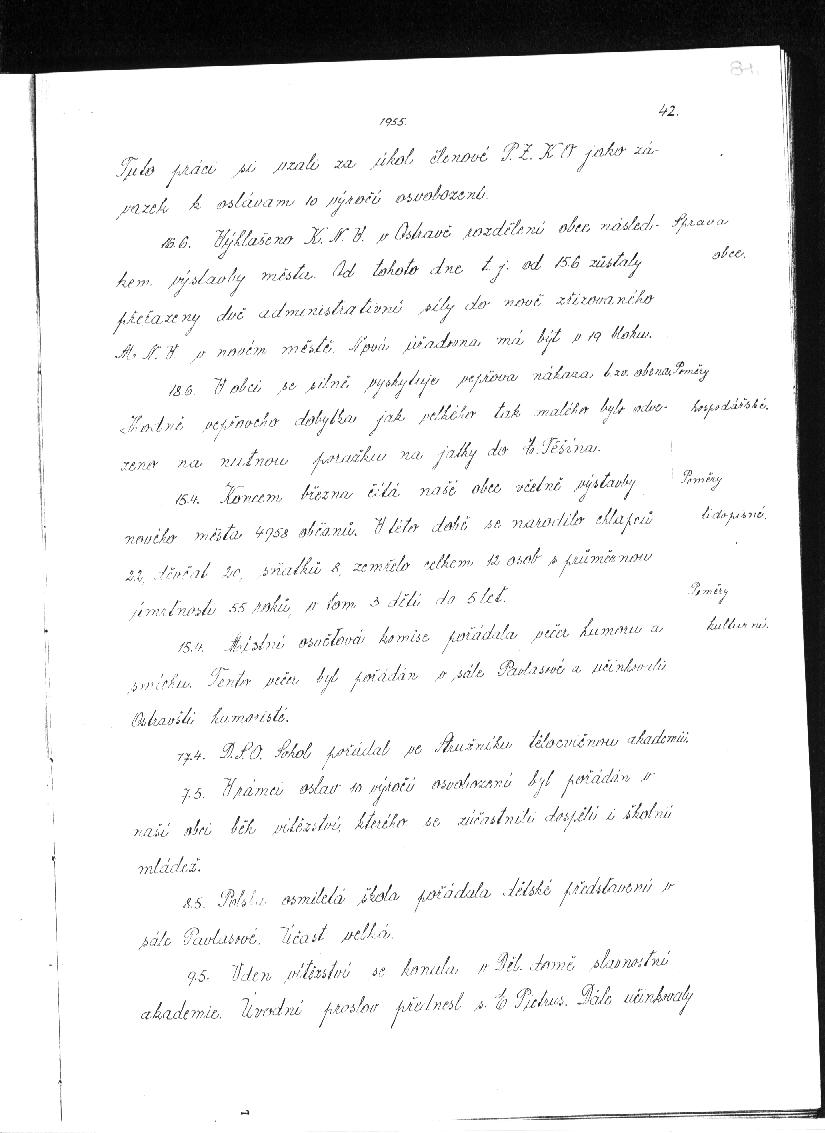 81.
42.
1955.
Tuto práci si vzali za úkol členové P.Z. K O jako zá-
vazek k oslávam 10 výročí osvobození.
16.6. Výhlašeno K.N.V. v Ostravě rozdělení obec násled- Sprava
kem výstavby města. Od tohoto dne t.j. od 15.6 zůstaly obec.
přeřazeny dvě administrativní síly do nově zřizovaného
M.N.V. v novém městě. Nová úřadovna má být v 19 bloku.
18.6. V obci se silně vyskytuje vepřova nákaza tzv. obrna Poměry
Hodně vepřoveho dobytka jak velkého tak malého bylo odve- hospodářské.
zeno na nutnou poražku na jatky do Č. Těšína.
15.4. Koncem března čítá naše obec včetně výstavby Poměry
nového města 4958 občanů. V této době se narodilo chlapců lidopisné.
22, děvčat 20, sňatků 8, zemřelo celkem 12 osob s průměrnou
úmrtnosti 55 roků, v tom 3 děti do 5 let. Poměry
15.4. Místní osvětová komise pořádala večer humoru a kulturní.
smíchu. Tento večer byl pořádán v sále Pavlasové a učinkovali
Ostravští humoristé.
17.4. D.S.O. Sokol pořádal ve Stružníku tělocvičnou akademii.
7.5. V rámci oslav 10 výročí osvobození byl pořádán v
naší obci běh vítězství, kterého se zúčastnili dospělí i školní
mládež.
8.5. Polska osmiletá škola pořádala dětské představení v
sále Pavlasové. Účast velká.
9.5. V den vítězství se konala v Děl. domě slavnostní
akademie. Úvodní proslov přednesl s. E Pietrus. Dále učinkovaly